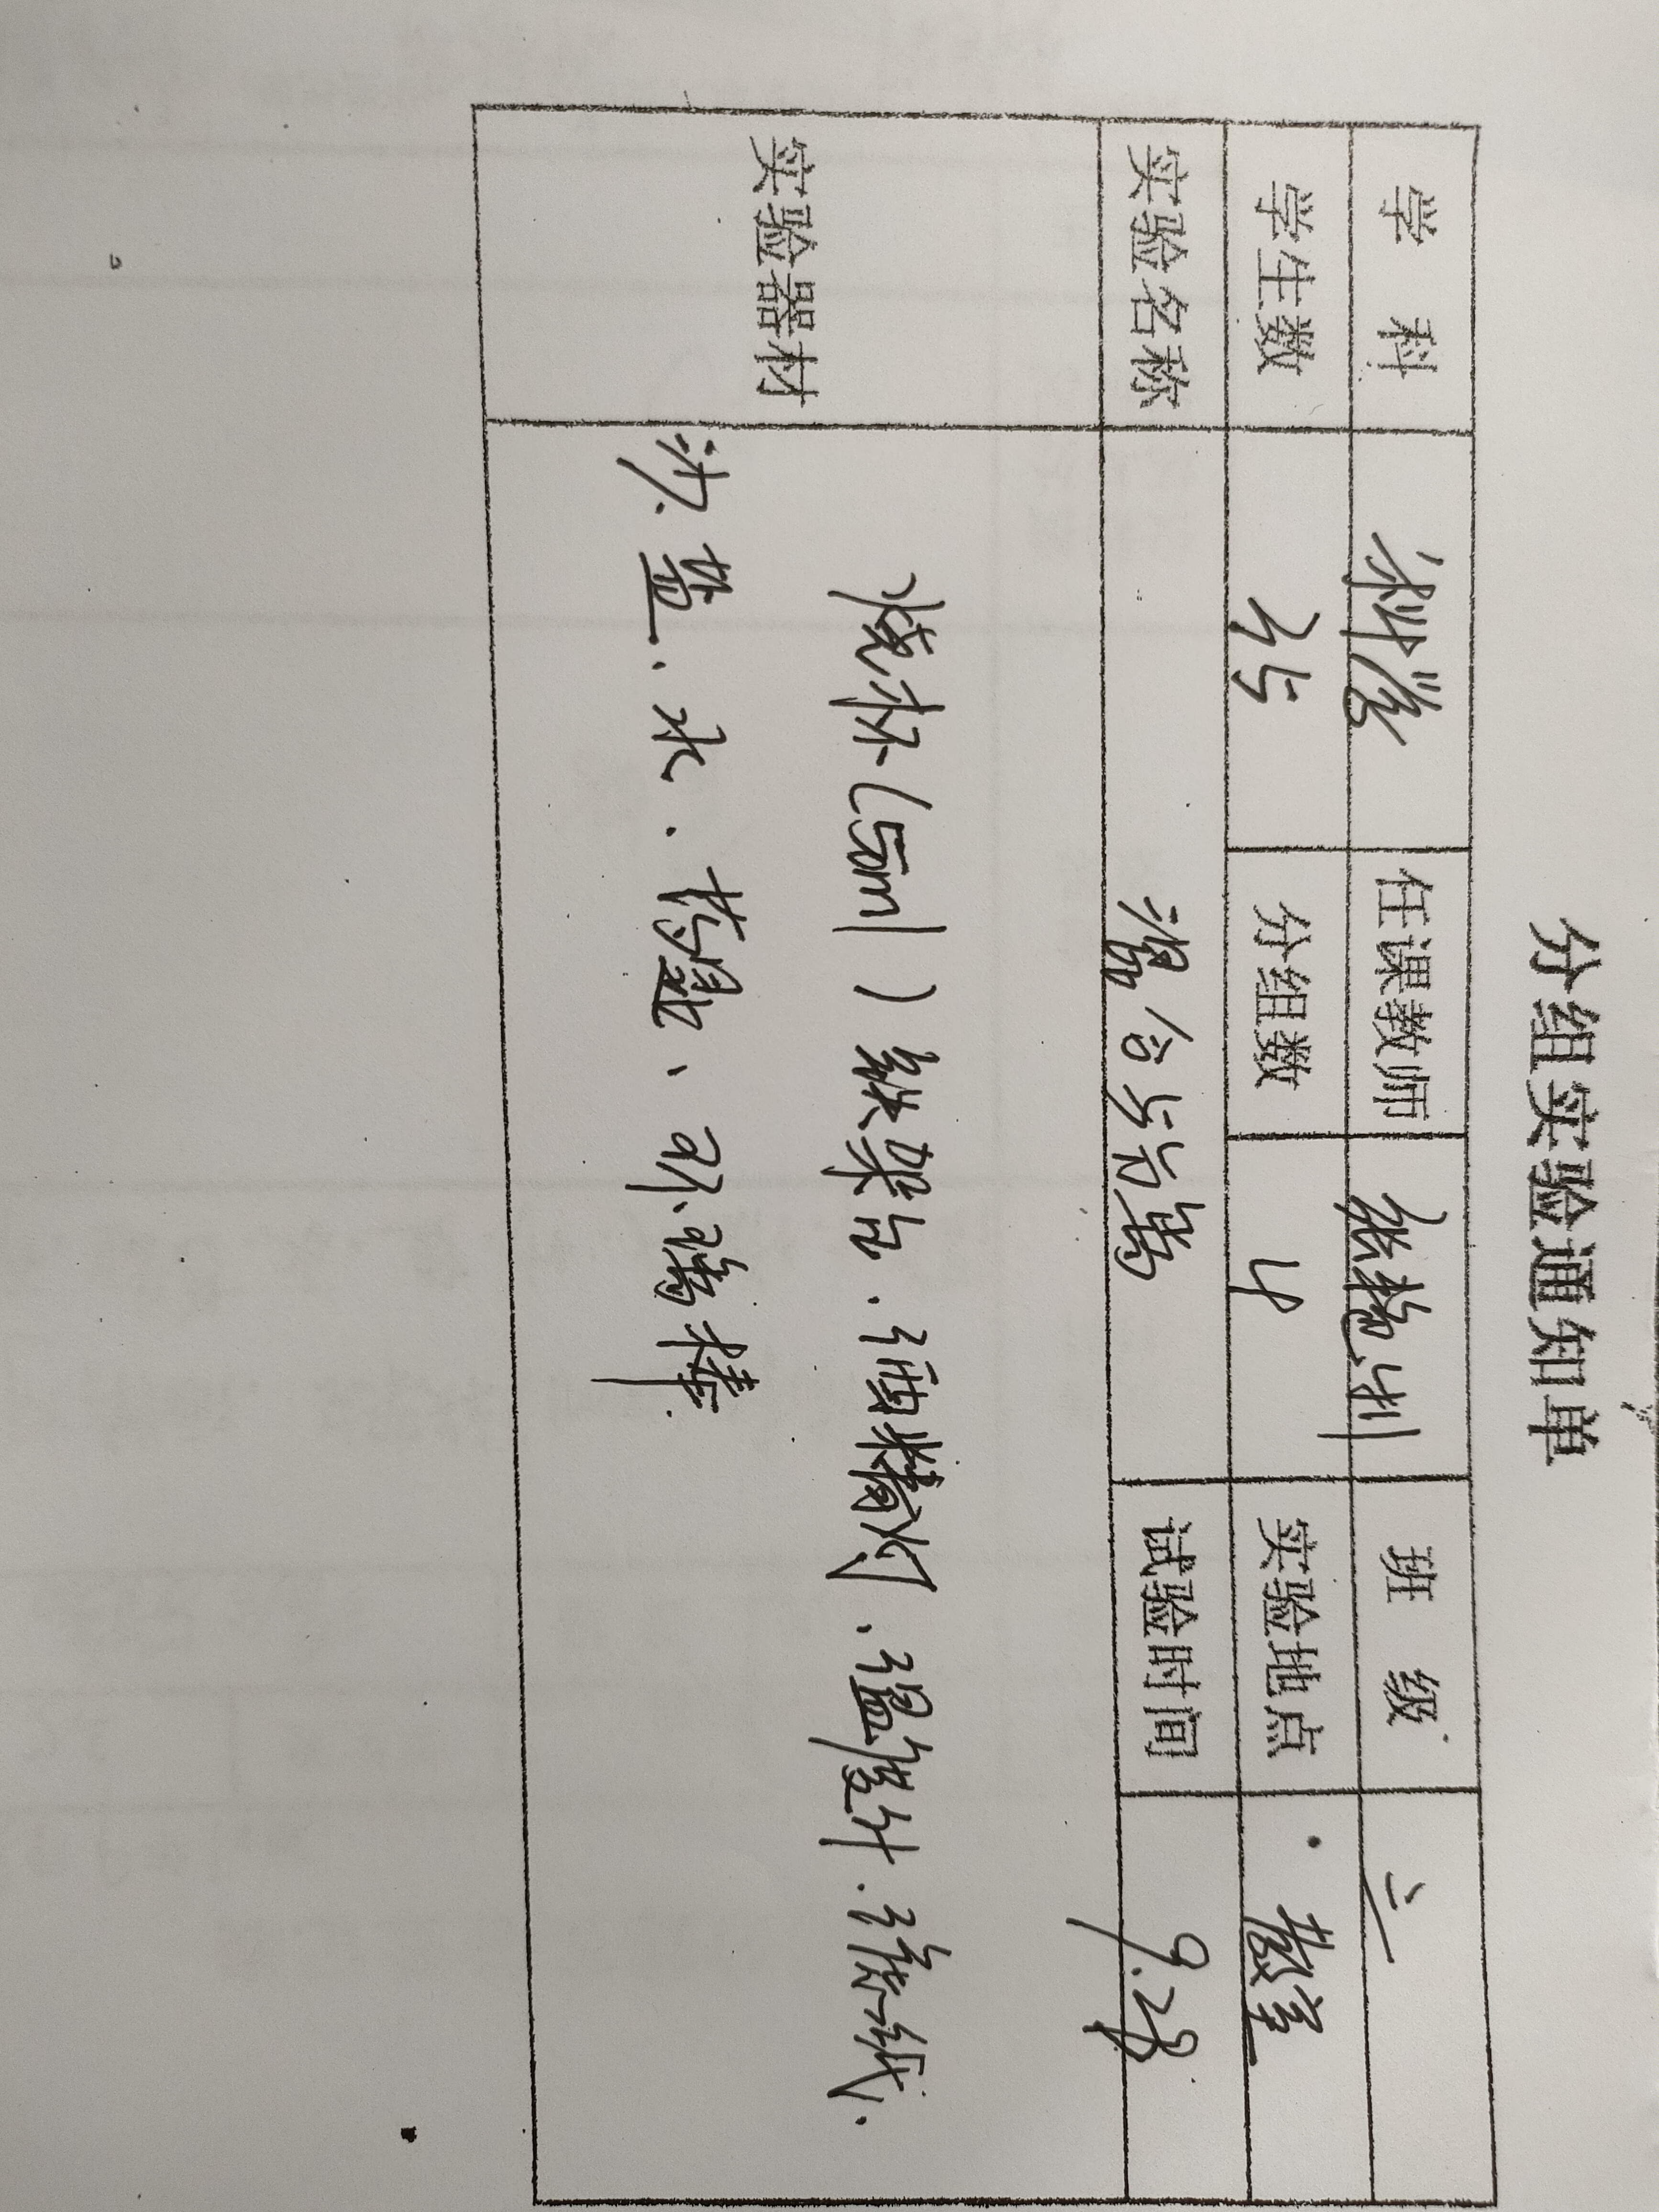 分组实验通知单
学 科 科学 任课教师 班 级 三
学生数 25 分组数 4 实验地点 教室
实验名称 混合与分离 试验时间 9.28
实验器材 烧杯(50ml) 铁架台、酒精灯、温度计、滤纸、
沙、盐、水、 、玻璃棒